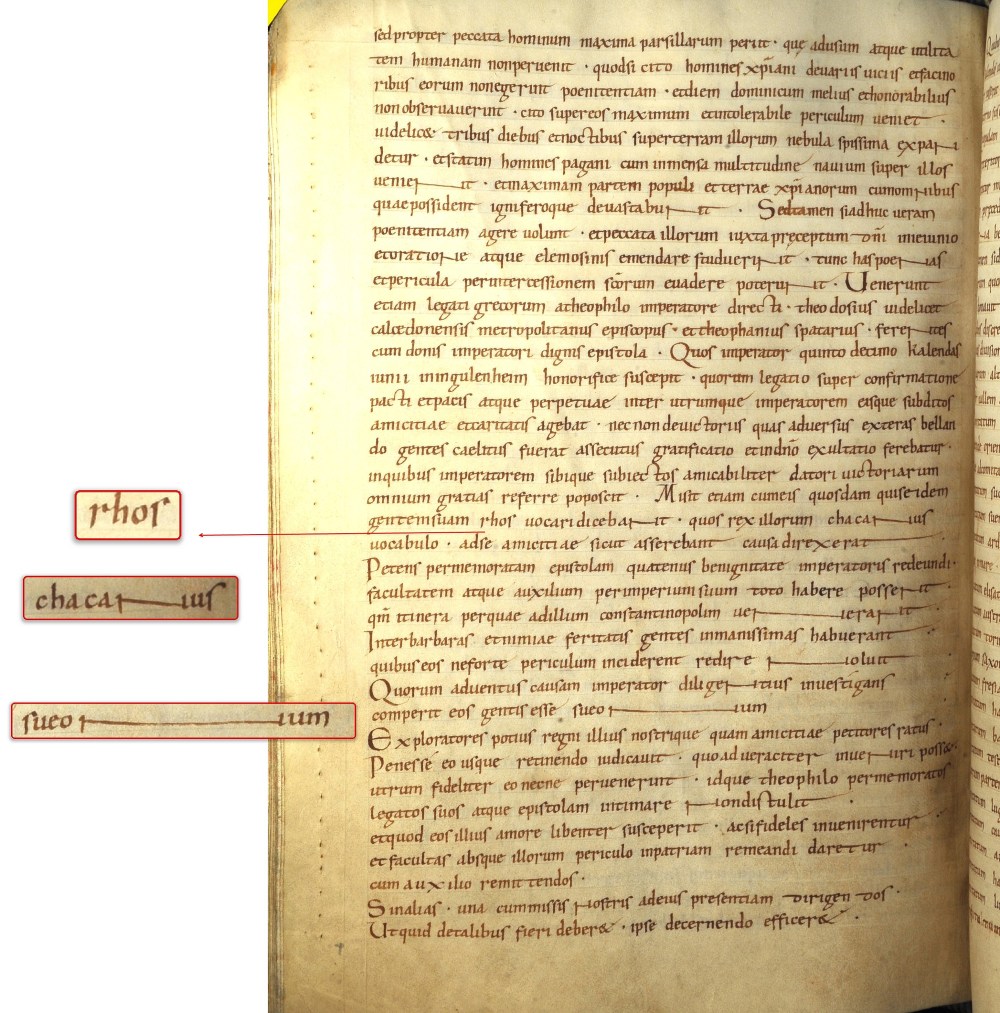 sed propter peccata hominum maxima pars illarum periit · quę ad usum atque utilita
tem humanam non pervenit · quod si cito homines xp̄iani de variis viciis et facino
ribus eorum non egerint poenitentiam · et diem dominicum melius et honorabilius
non observaverint · cito super eos maximum et intolerabile periculum veniet ·
videlic& tribus diebus et noctibus super terram illorum nebula spissima expan
detur · et statim homines pagani cum inmensa multitudine navium super illos
venient · et maximam partem populi et terrae xp̄ianorum cum omnibus
quae possident igni ferroque devastabunt · Sed tamen si adhuc veram
poenitentiam agere volunt · et peccata illorum iuxta pręceptum dn̄i in ieiunio
et oratione atque elemosinis emendare studuerint · tunc has poenas
et pericula per intercessionem sc̄orum evadere poterunt · Venerunt
etiam legati grecorum a theophilo imperatore directi · theodosius videlicet
calcedonensis metropolitanus episcopus · et theophanius spatarius · ferentes
cum donis imperatori dignis epistola · Quos imperator quinto decimo kalendas
iunii in ingulenheim honorifice suscepit · quorum legatio super confirmatione
pacti et pacis atque perpetuae inter utrumque imperatorem eique subditos
amicitiae et caritatis agebat · necnon de victoriis quas adversus exteras bellan
do gentes caelitus fuerat assecutus gratificatio et in dn̄o exultatio ferebatur ·
in quibus imperatorem sibique subiectos amicabiliter datori victoriarum
omnium gratias referre poposcit · Misit etiam cum eis quosdam qui se idem
gentem suam rhos vocari dicebant · quos rex illorum chacanus
vocabulo · ad se amicitiae sicut asserebant causa direxerat
Petens per memoratam epistolam quatenus benignitate imperatoris redeundi ·
facultatem atque auxilium per imperium suum toto habere possent ·
qm̄ itinera per quae ad illum constantinopolim venerant ·
Inter barbaras et nimiae feritatis gentes inmanissimas habuerant
quibus eos ne forte periculum inciderent redire noluit ·
Quorum adventus causam imperator diligentius investigans
comperit eos gentis esse sueonum
Exploratores potius regni illius nostrique quam amicitiae petitores ratus ·
Penes se eo usque retinendo iudicavit · quo ad veraciter inveniri poss&
utrum fideliter eo necne pervenerint · idque theophilo per memoratos
legatos suos atque epistolam intimare non distulit ·
et quod eos illius amore libenter susceperit · ac si fideles invenirentur
et facultas absque illorum periculo in patriam remeandi daretur
cum auxilio remittendos ·
Sin alias · una cum missis nostris ad eius presentiam dirigendos ·
Ut quid de talibus fieri deber& · ipse decernendo efficer& ·
rhos
chacanus
sueonum